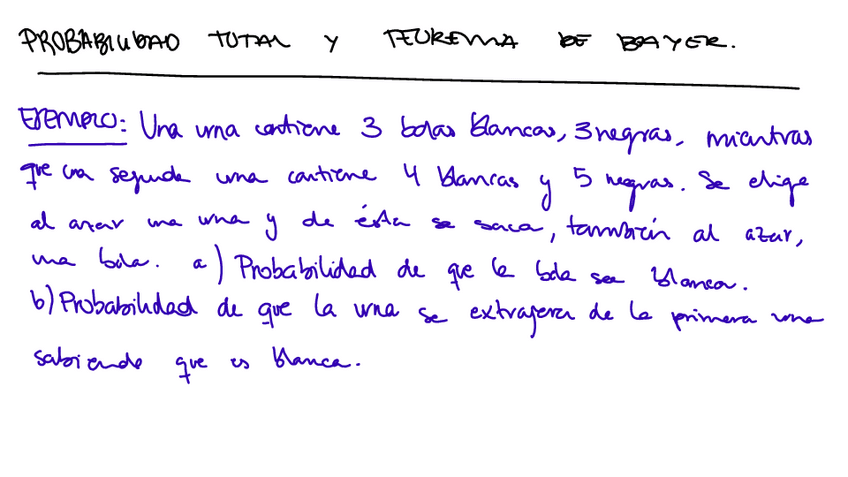 PROBABILIDAD TOTAL Y TEOREMA DE BAYER.
EJEMPLO: Una urna contiene 3 bolas blancas, 3 negras, mientras
que una segunda urna contiene 4 blancas y 5 negras. Se elige
al azar una urna y de ésta se saca, también al azar,
una bola. a) Probabilidad de que la bola sea blanca.
b) Probabilidad de que la urna se extrajera de la primera urna
sabiendo que es blanca.